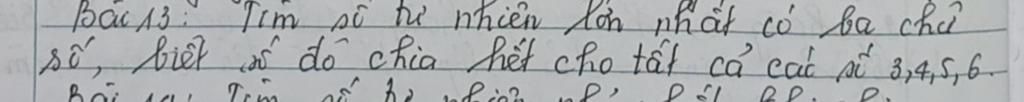 Bài 13: Tìm số tự nhiên lớn nhất có ba chữ
số, biết số đó chia hết cho tất cả các số 3,4,5,6.